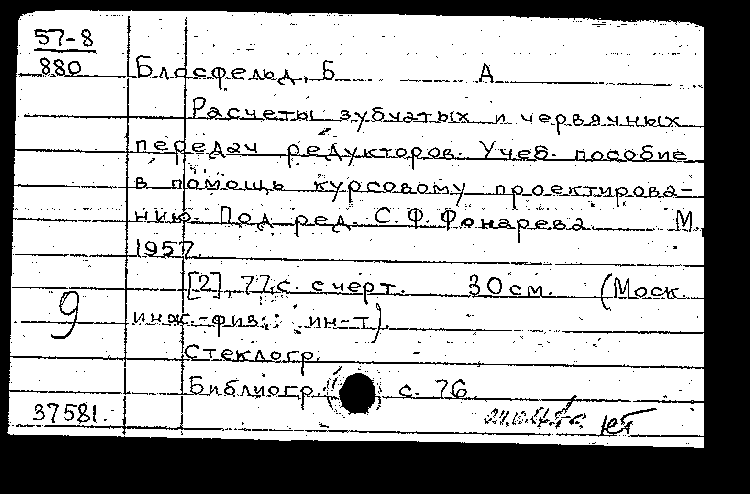 57-8
880 Блосфельд, Б А
Расчеты зубчатых и червячных
передач редукторов. Учеб. пособие
в помощь курсовому проектирова-
нию. Под ред. С.Ф. Фонарева. М.,
1957.
[2], 77 с. с черт. 30 см. (Моск.
9 инж.-физ. ин-т).
Стеклогр.
Библиогр. с. 76
37581.